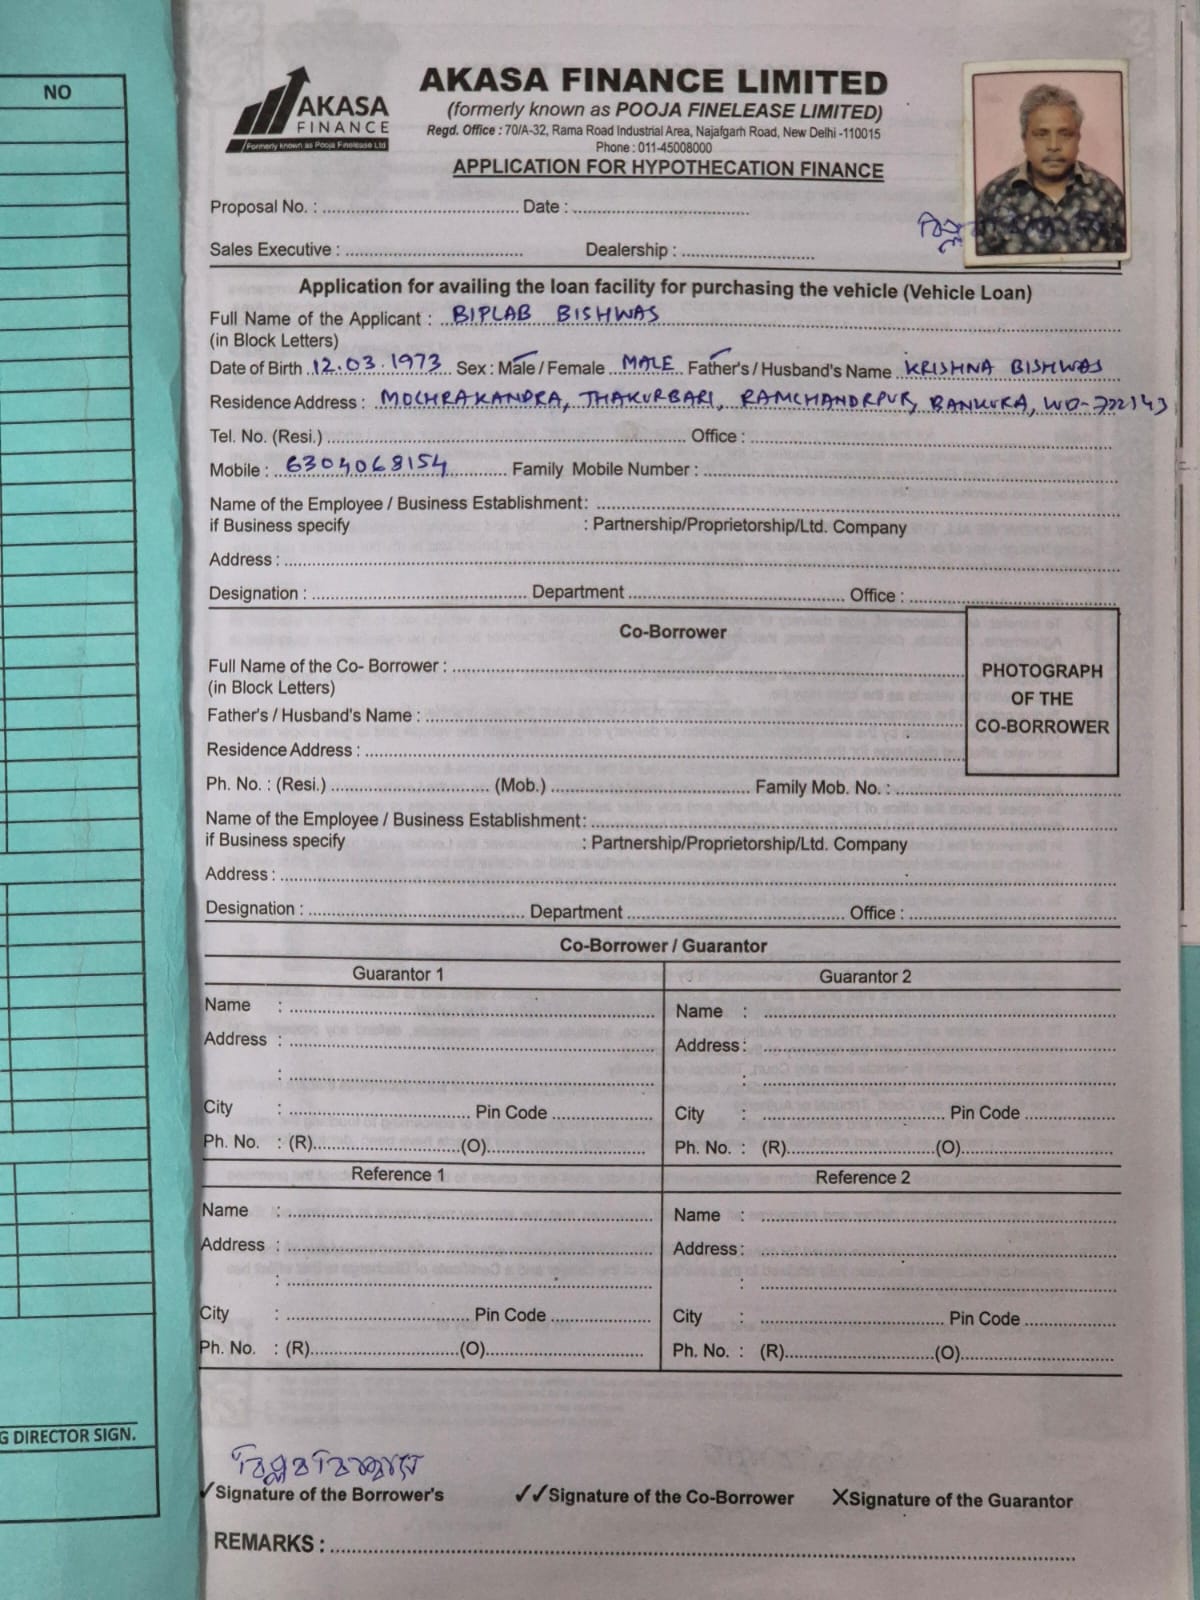 NO
AKASA
FINANCE
Formerly known as Pooja Finelease Ltd
AKASA FINANCE LIMITED
(formerly known as POOJA FINELEASE LIMITED)
Regd. Office : 70/A-32, Rama Road Industrial Area, Najafgarh Road, New Delhi -110015
Phone : 011-45008000
APPLICATION FOR HYPOTHECATION FINANCE
Proposal No. : Date :
Sales Executive : Dealership :
Application for availing the loan facility for purchasing the vehicle (Vehicle Loan)
Full Name of the Applicant : BIPLAB BISHWAS
(in Block Letters)
Date of Birth 12.03.1973 Sex : Male / Female MALE Father's / Husband's Name KRISHNA BISHWAS
Residence Address : MOCHRAKANDRA, THAKURBARI, RAMCHANDRPUR, BANKURA, WO-722143
Tel. No. (Resi.) Office :
Mobile : 6304068154 Family Mobile Number :
Name of the Employee / Business Establishment:
if Business specify : Partnership/Proprietorship/Ltd. Company
Address :
Designation : Department Office :
Co-Borrower
Full Name of the Co- Borrower :
(in Block Letters)
Father's / Husband's Name :
Residence Address :
PHOTOGRAPH
OF THE
CO-BORROWER
Ph. No. : (Resi.) (Mob.) Family Mob. No. :
Name of the Employee / Business Establishment:
if Business specify : Partnership/Proprietorship/Ltd. Company
Address :
Designation : Department Office :
Co-Borrower / Guarantor
Guarantor 1 Guarantor 2
Name : Name :
Address : Address :
: :
City : Pin Code City : Pin Code
Ph. No. : (R) (O) Ph. No. : (R) (O)
Reference 1 Reference 2
Name : Name :
Address : Address :
: :
City : Pin Code City : Pin Code
Ph. No. : (R) (O) Ph. No. : (R) (O)
G DIRECTOR SIGN.
✓Signature of the Borrower's ✓✓Signature of the Co-Borrower XSignature of the Guarantor
REMARKS :